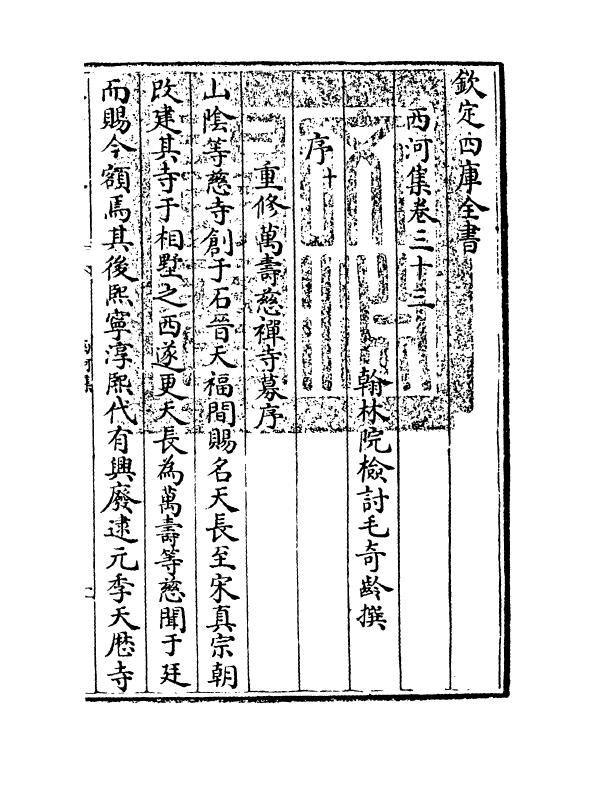 欽定四庫全書
西河集卷三十三
翰林院檢討毛奇齡撰
序十
重修萬壽慈禪寺募序
山陰等慈寺創于石晉天福間賜名天長至宋真宗朝
改建其寺于相墅之西遂更天長為萬壽等慈聞于廷
而賜今額焉其後熙寧淳熙代有興廢逮元季天厯寺